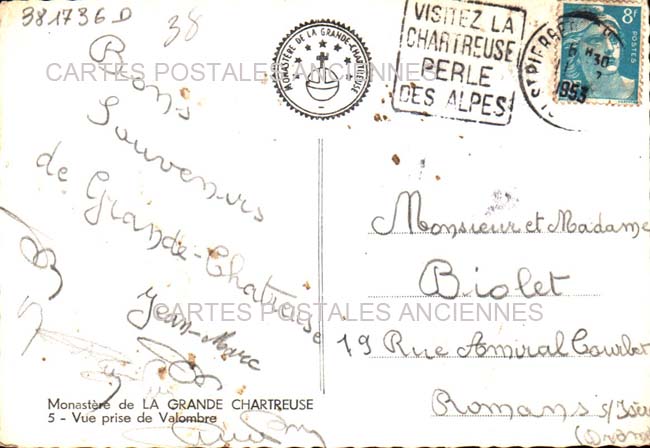 381736 D
38
MONASTÈRE DE LA GRANDE-CHARTREUSE
VISITEZ LA
CHARTREUSE
PERLE
DES ALPES
ST PIERRE
6 H 30
1953
8F
POSTES
CARTES POSTALES ANCIENNES
Bons
Souvenirs
de Grande-Chatreuse
Jean-Marc
Monsieur et Madame
Biolet
CARTES POSTALES ANCIENNES
19 Rue Amiral Courbet
Romans s/Isère
(Drôme
Monastère de LA GRANDE CHARTREUSE
5 - Vue prise de Valombre